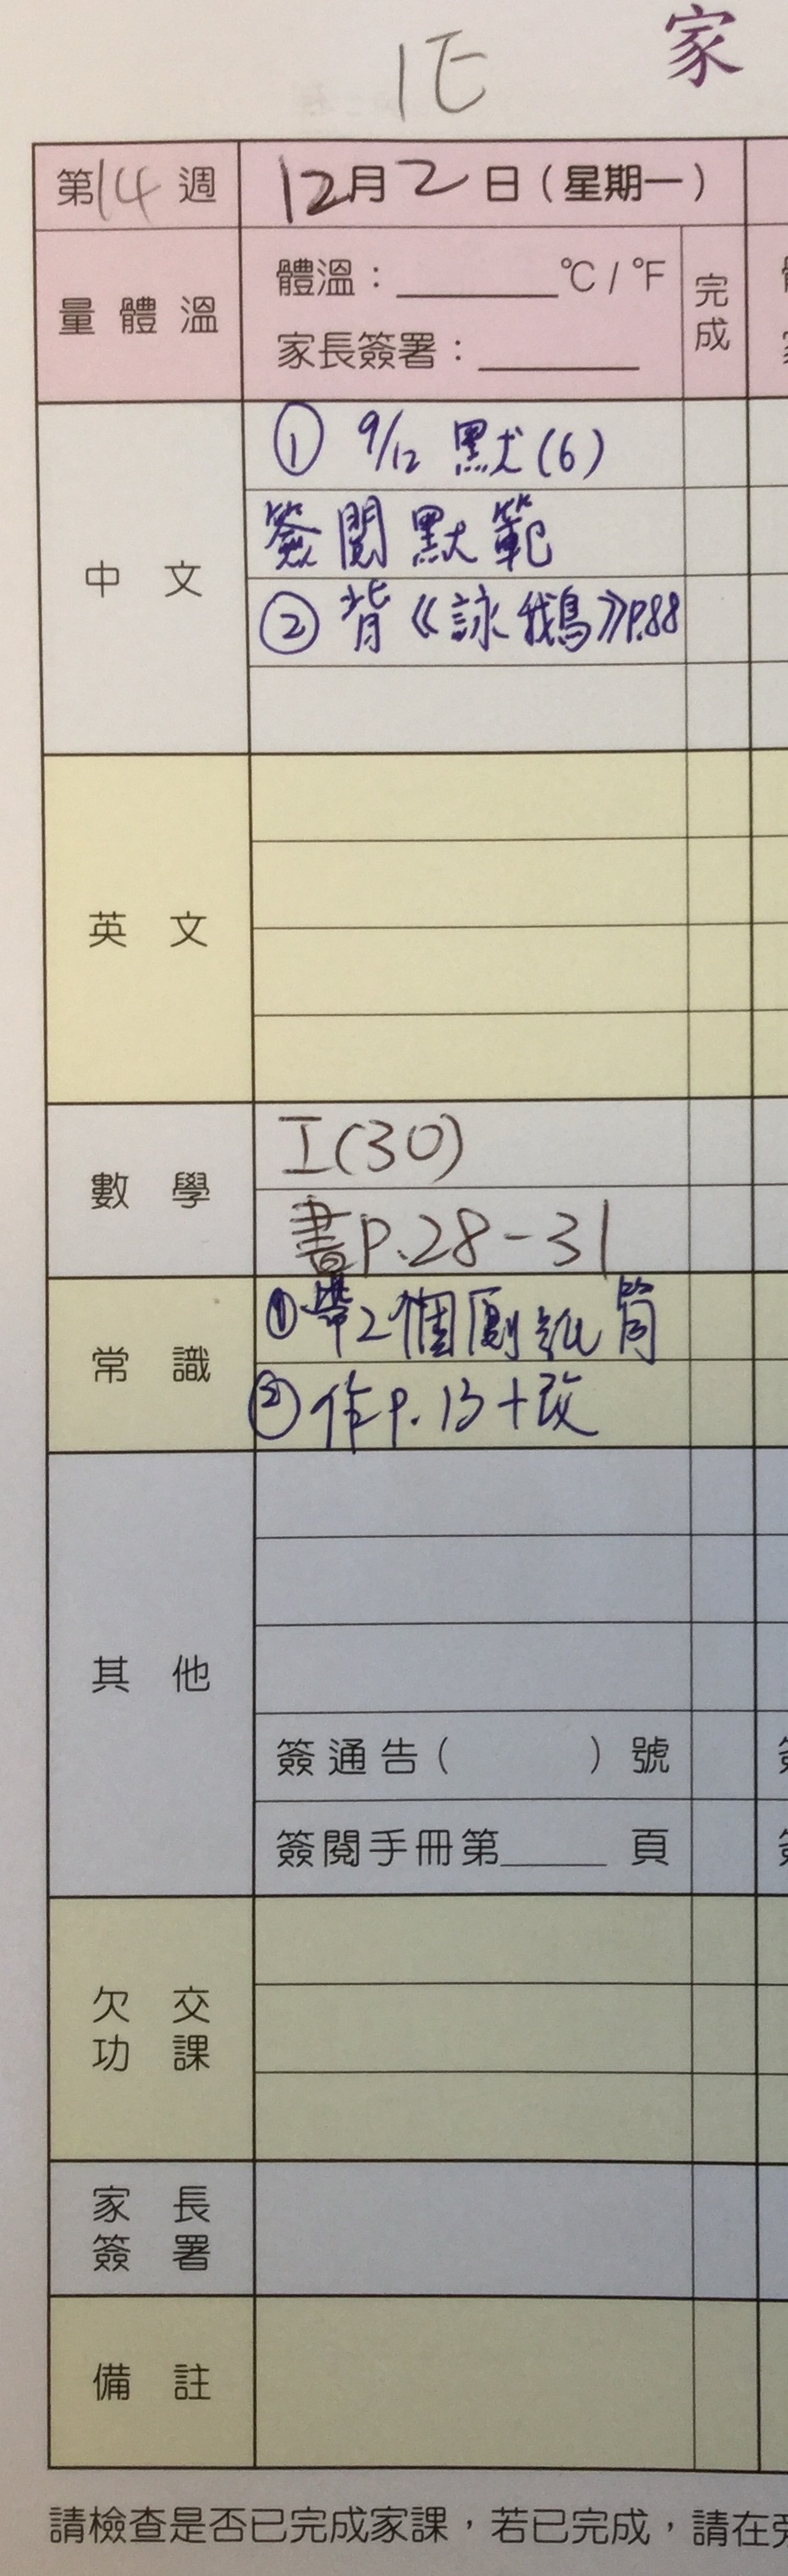 1E
家
第14週
12月2日(星期一)
量體溫
體溫:______°C/°F
家長簽署:______
完成
中文
① 9/12 默(6)
簽閱默範
② 背《詠鵝》P.88
英文
數學
I(30)
書P.28-31
常識
①帶2個廁紙筒
②作P.13+改
其他
簽通告( )號
簽閱手冊第____頁
欠交
功課
家長
簽署
備註
請檢查是否已完成家課,若已完成,請在旁